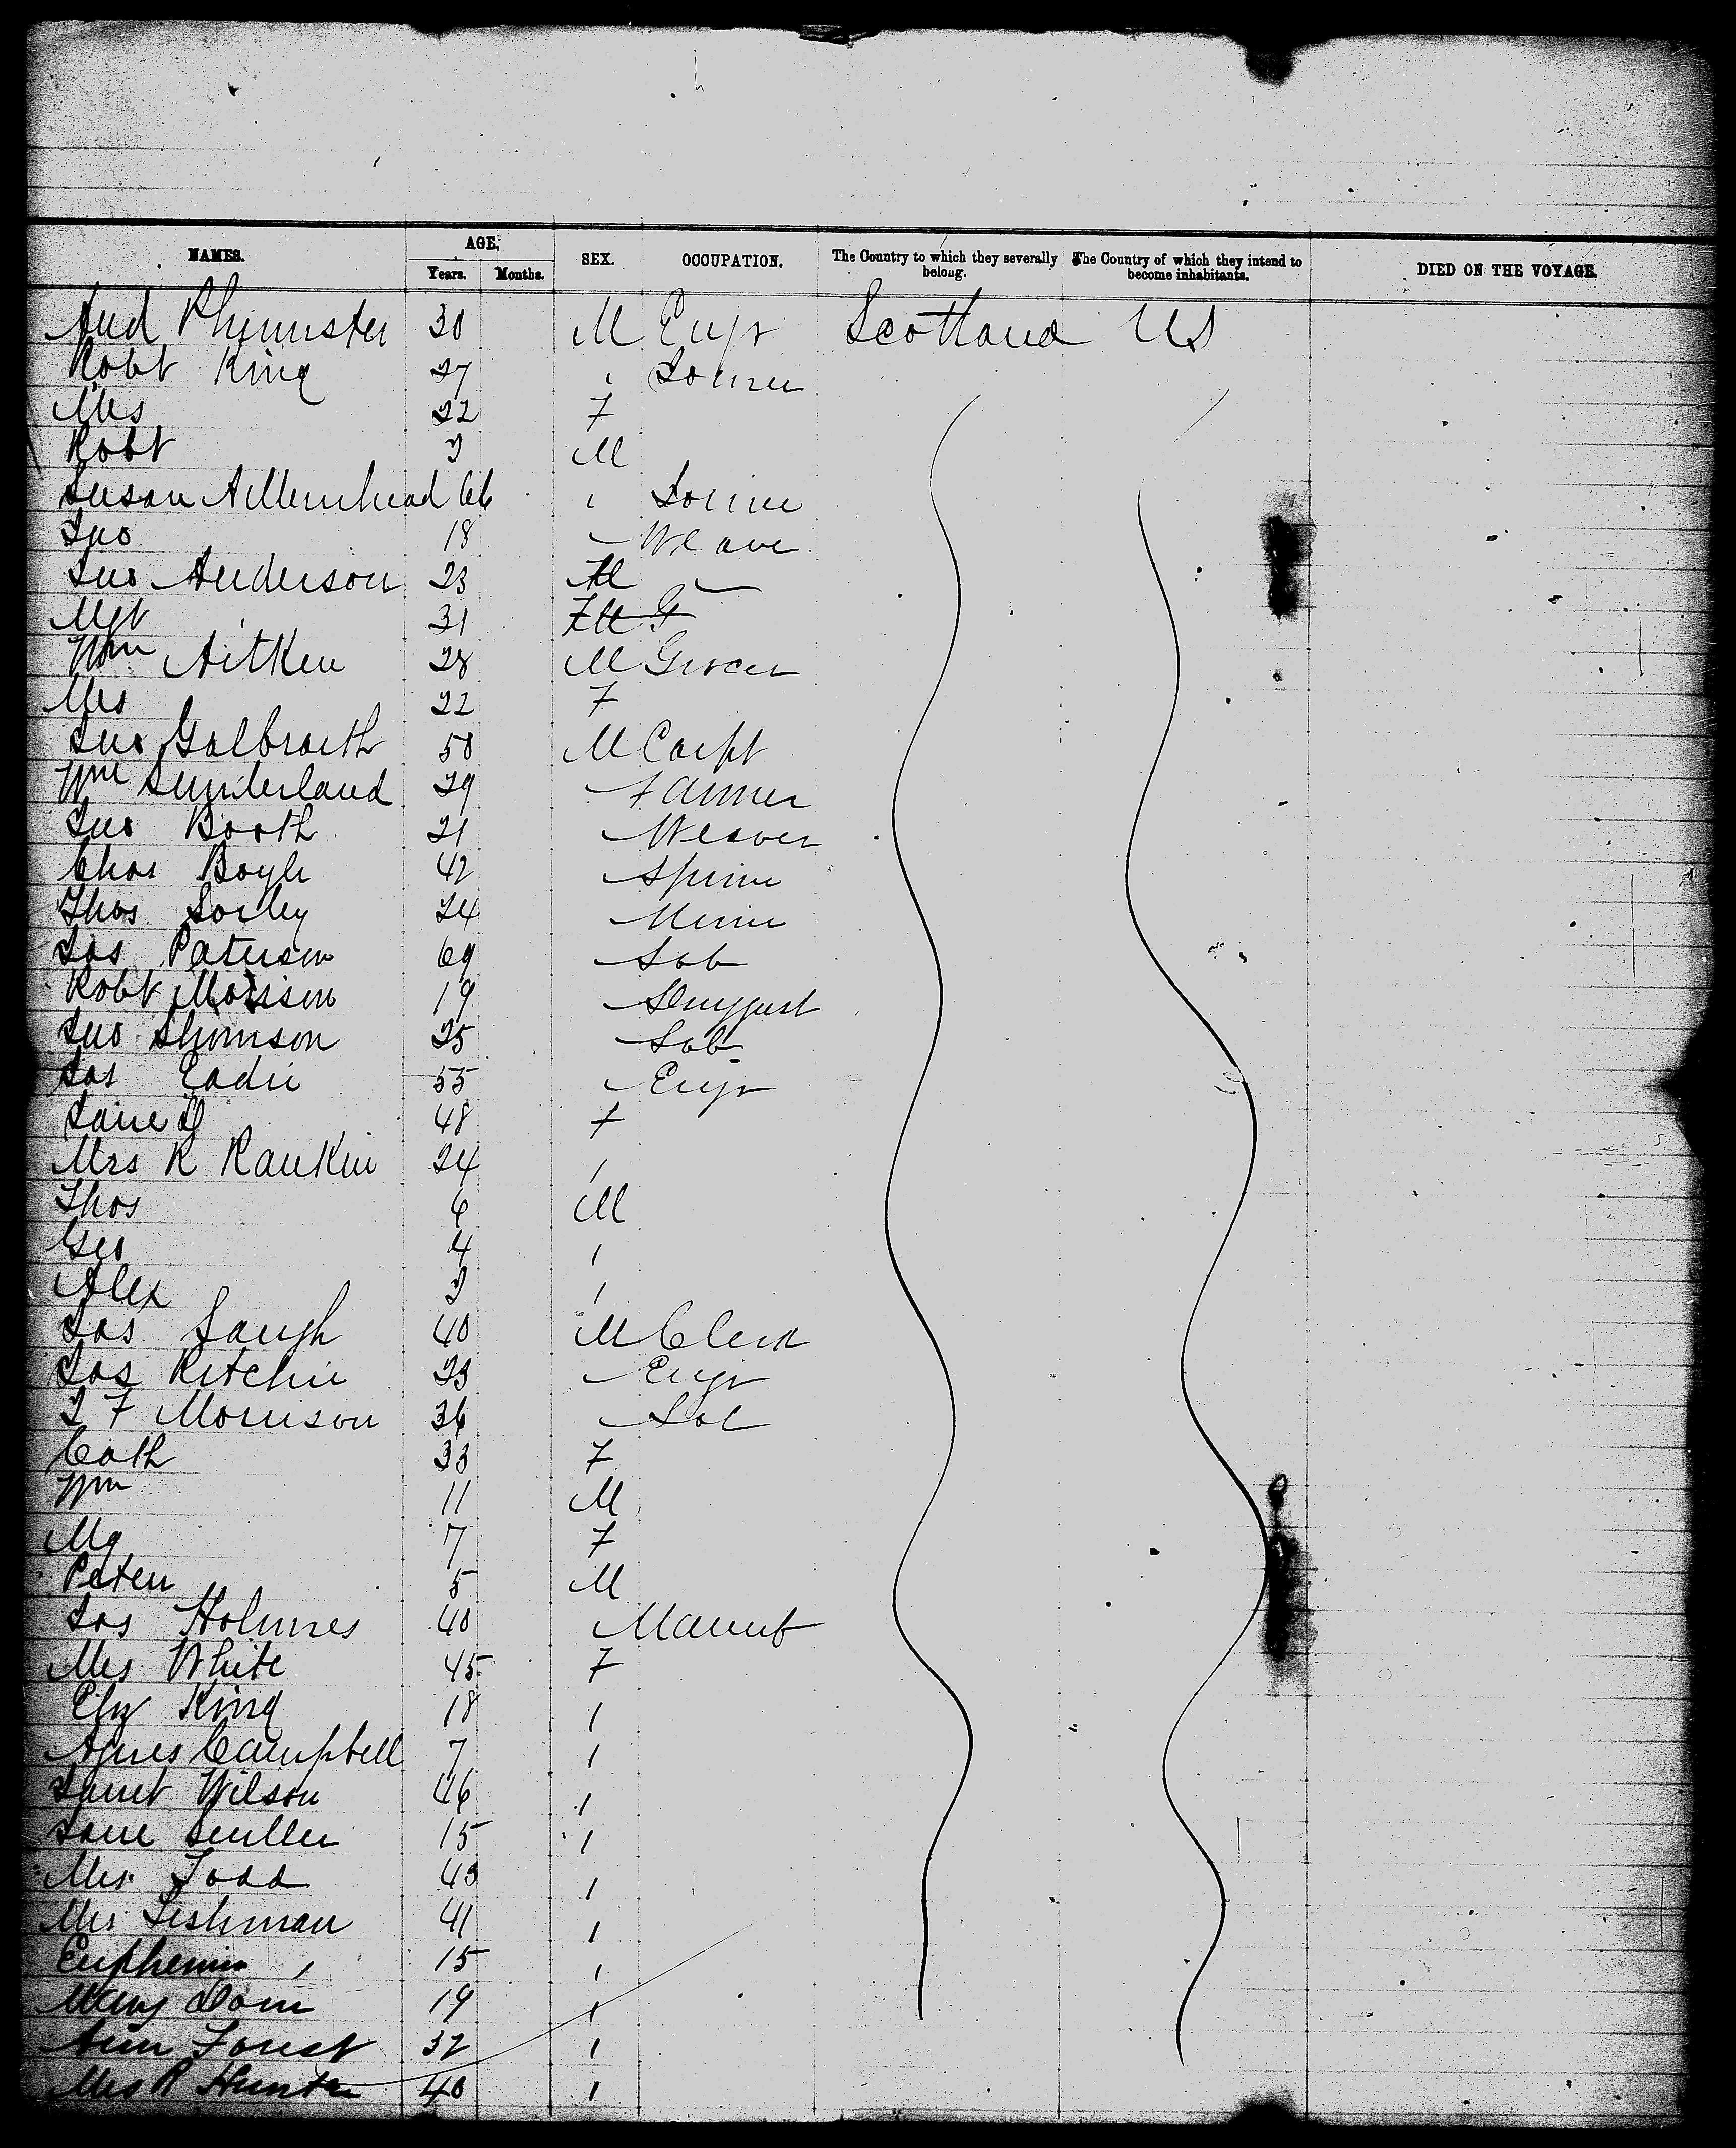 NAMES. AGE, SEX. OCCUPATION. The Country to which they severally belong. The Country of which they intend to become inhabitants. DIED ON THE VOYAGE.
Years. Months.
And Phimister 30 M Engr Scotland US
Robt King 27 Joiner
Mrs 22 F
Robt 3 M
Susan 66
Jno 18 Weave
Jno Anderson 23 M
Mgt 31
Wm Aitken 28 M Grocer
Mrs 22 F
Jno Galbraith 50 M Carpt
Wm Sunderland 29 Farmer
Jno Booth 21 Weaver
Chas Boyle 42
Thos Sorley 24
Jas Paterson 69 Lab
Robt 19 Druggist
Jno Thomson 25 Lab
Jas Eadie 55 Engr
Jane D 48 F
Mrs R Rankin 24
Thos 6 M
Geo 4
Alex 3
Jas 40 M Clerk
Jas Ritchie 23 Engr
J F Morrison 36
Cath 33 F
Wm 11 M
Mg 7 F
Peter 5 M
Jas Holmes 40
Mrs White 45 F
Eliz King 18
Agnes Campbell 7
Janet Wilson 46
Jane 15
Mrs Todd 43
Mrs Lishman 41
Euphemia 15
Mary 19
Ann Forrest 32
Mrs R Hunter 40